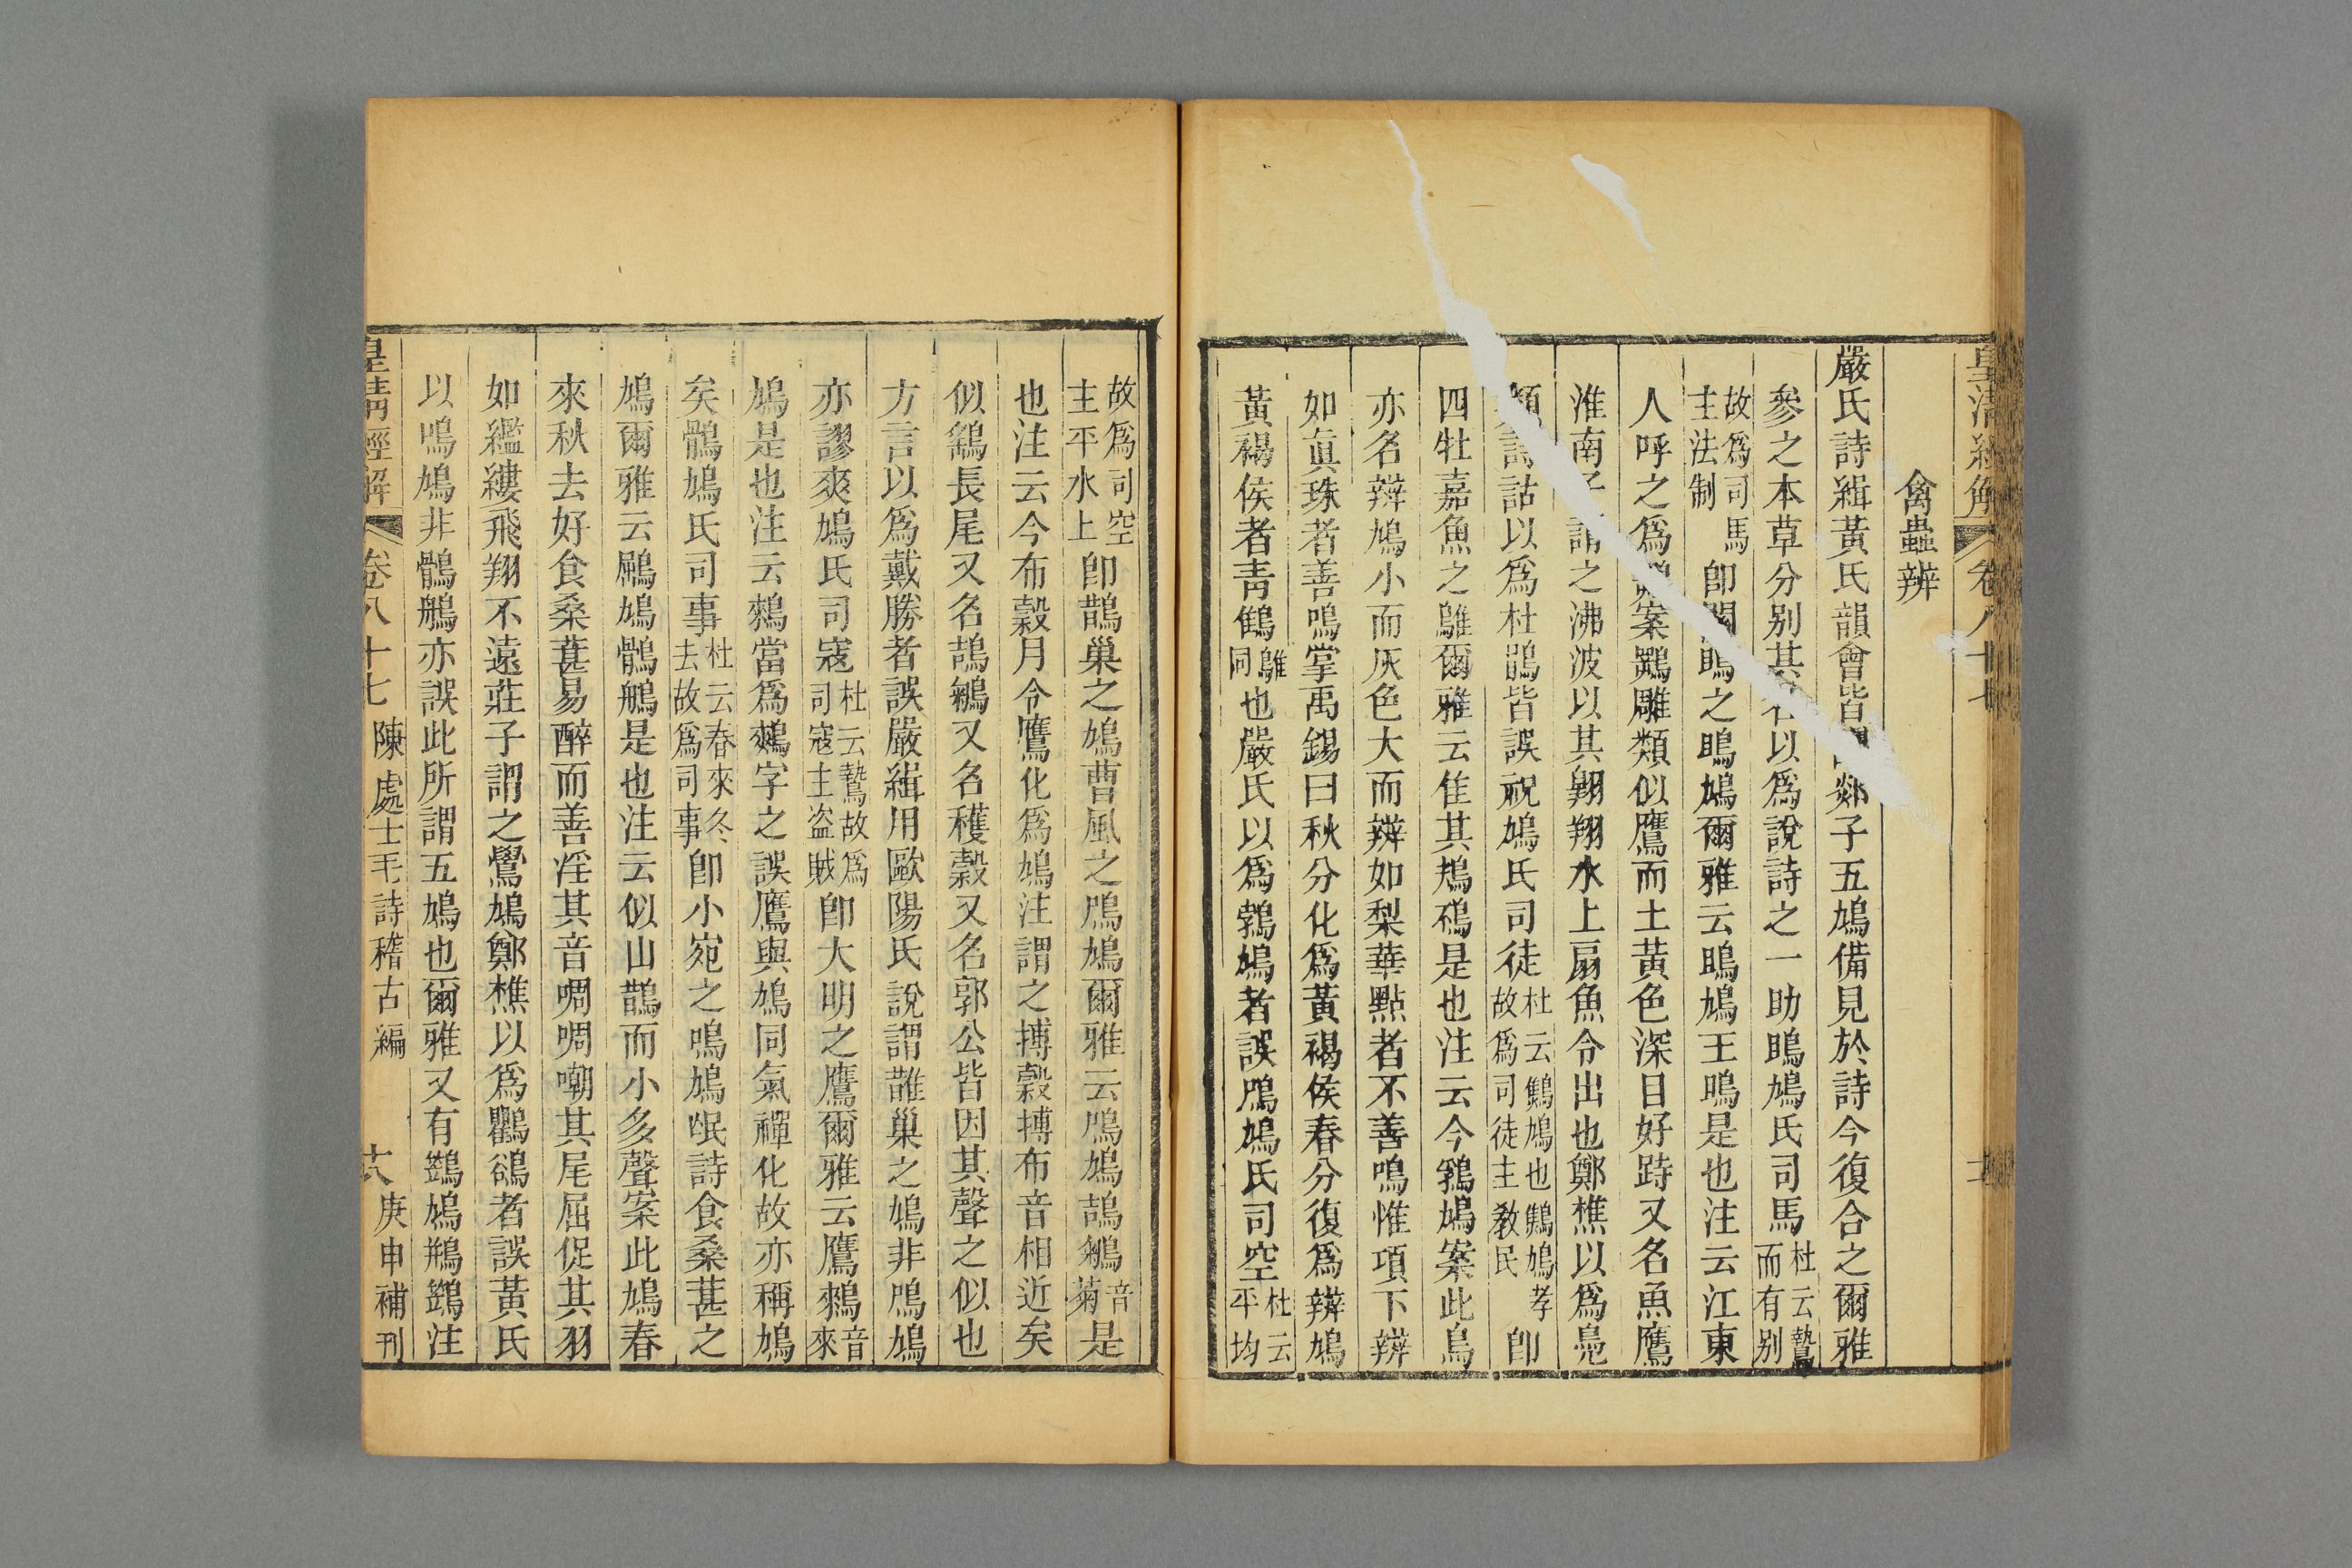 皇清經解 卷八十七
禽蟲辨
嚴氏詩緝黃氏韻會皆 郯子五鳩備見於詩今復合之爾雅
參之本草分别其 以爲說詩之一助鴡鳩氏司馬杜云鷙而有别
故爲司馬主法制卽關鴡之鴡鳩爾雅云鴡鳩王鴡是也注云江東
人呼之爲鶚案鶚雕類似鷹而土黃色深目好跱又名魚鷹
淮南子謂之沸波以其翺翔水上扇魚令出也鄭樵以爲鳧
類 詁以爲杜鵑皆誤祝鳩氏司徒杜云鷦鳩也鷦鳩孝故爲司徒主敎民卽
四牡嘉魚之鵻爾雅云隹其鳺鴀是也注云今鶉鳩案此鳥
亦名辨鳩小而灰色大而辨如梨華點者不善鳴惟項下辨
如眞珠者善鳴掌禹錫曰秋分化爲黃褐侯春分復爲辨鳩
黃褐侯者青鶴鵻同也嚴氏以爲鶉鳩者誤鳲鳩氏司空杜云平均
故爲司空主平水土卽鵲巢之鳩曹風之鳲鳩爾雅云鳲鳩鴶鵴音菊是
也注云今布穀月令鷹化爲鳩注謂之搏穀搏布音相近矣
似鷂長尾又名鴶鵴又名穫穀又名郭公皆因其聲之似也
方言以爲戴勝者誤嚴緝用歐陽氏說謂鵲巢之鳩非鳲鳩
亦謬爽鳩氏司寇杜云鷙故爲司寇主盜賊卽大明之鷹爾雅云鷹鶆音來
鳩是也注云鶆當爲鷞字之誤鷹與鳩同氣禪化故亦稱鳩
矣鶻鳩氏司事杜云春來冬去故爲司事卽小宛之鳴鳩氓詩食桑葚之
鳩爾雅云鶌鳩鶻鵃是也注云似山鵲而小多聲案此鳩春
來秋去好食桑葚易醉而善淫其音啁啁嘲其尾屈促其羽
如繿縷飛翔不遠莊子謂之鷽鳩鄭樵以爲鸜鵒者誤黃氏
以鳴鳩非鶻鵃亦誤此所謂五鳩也爾雅又有鷑鳩鵧鷑注
皇清經解 卷八十七 陳處士毛詩稽古編 六 庚申補刊